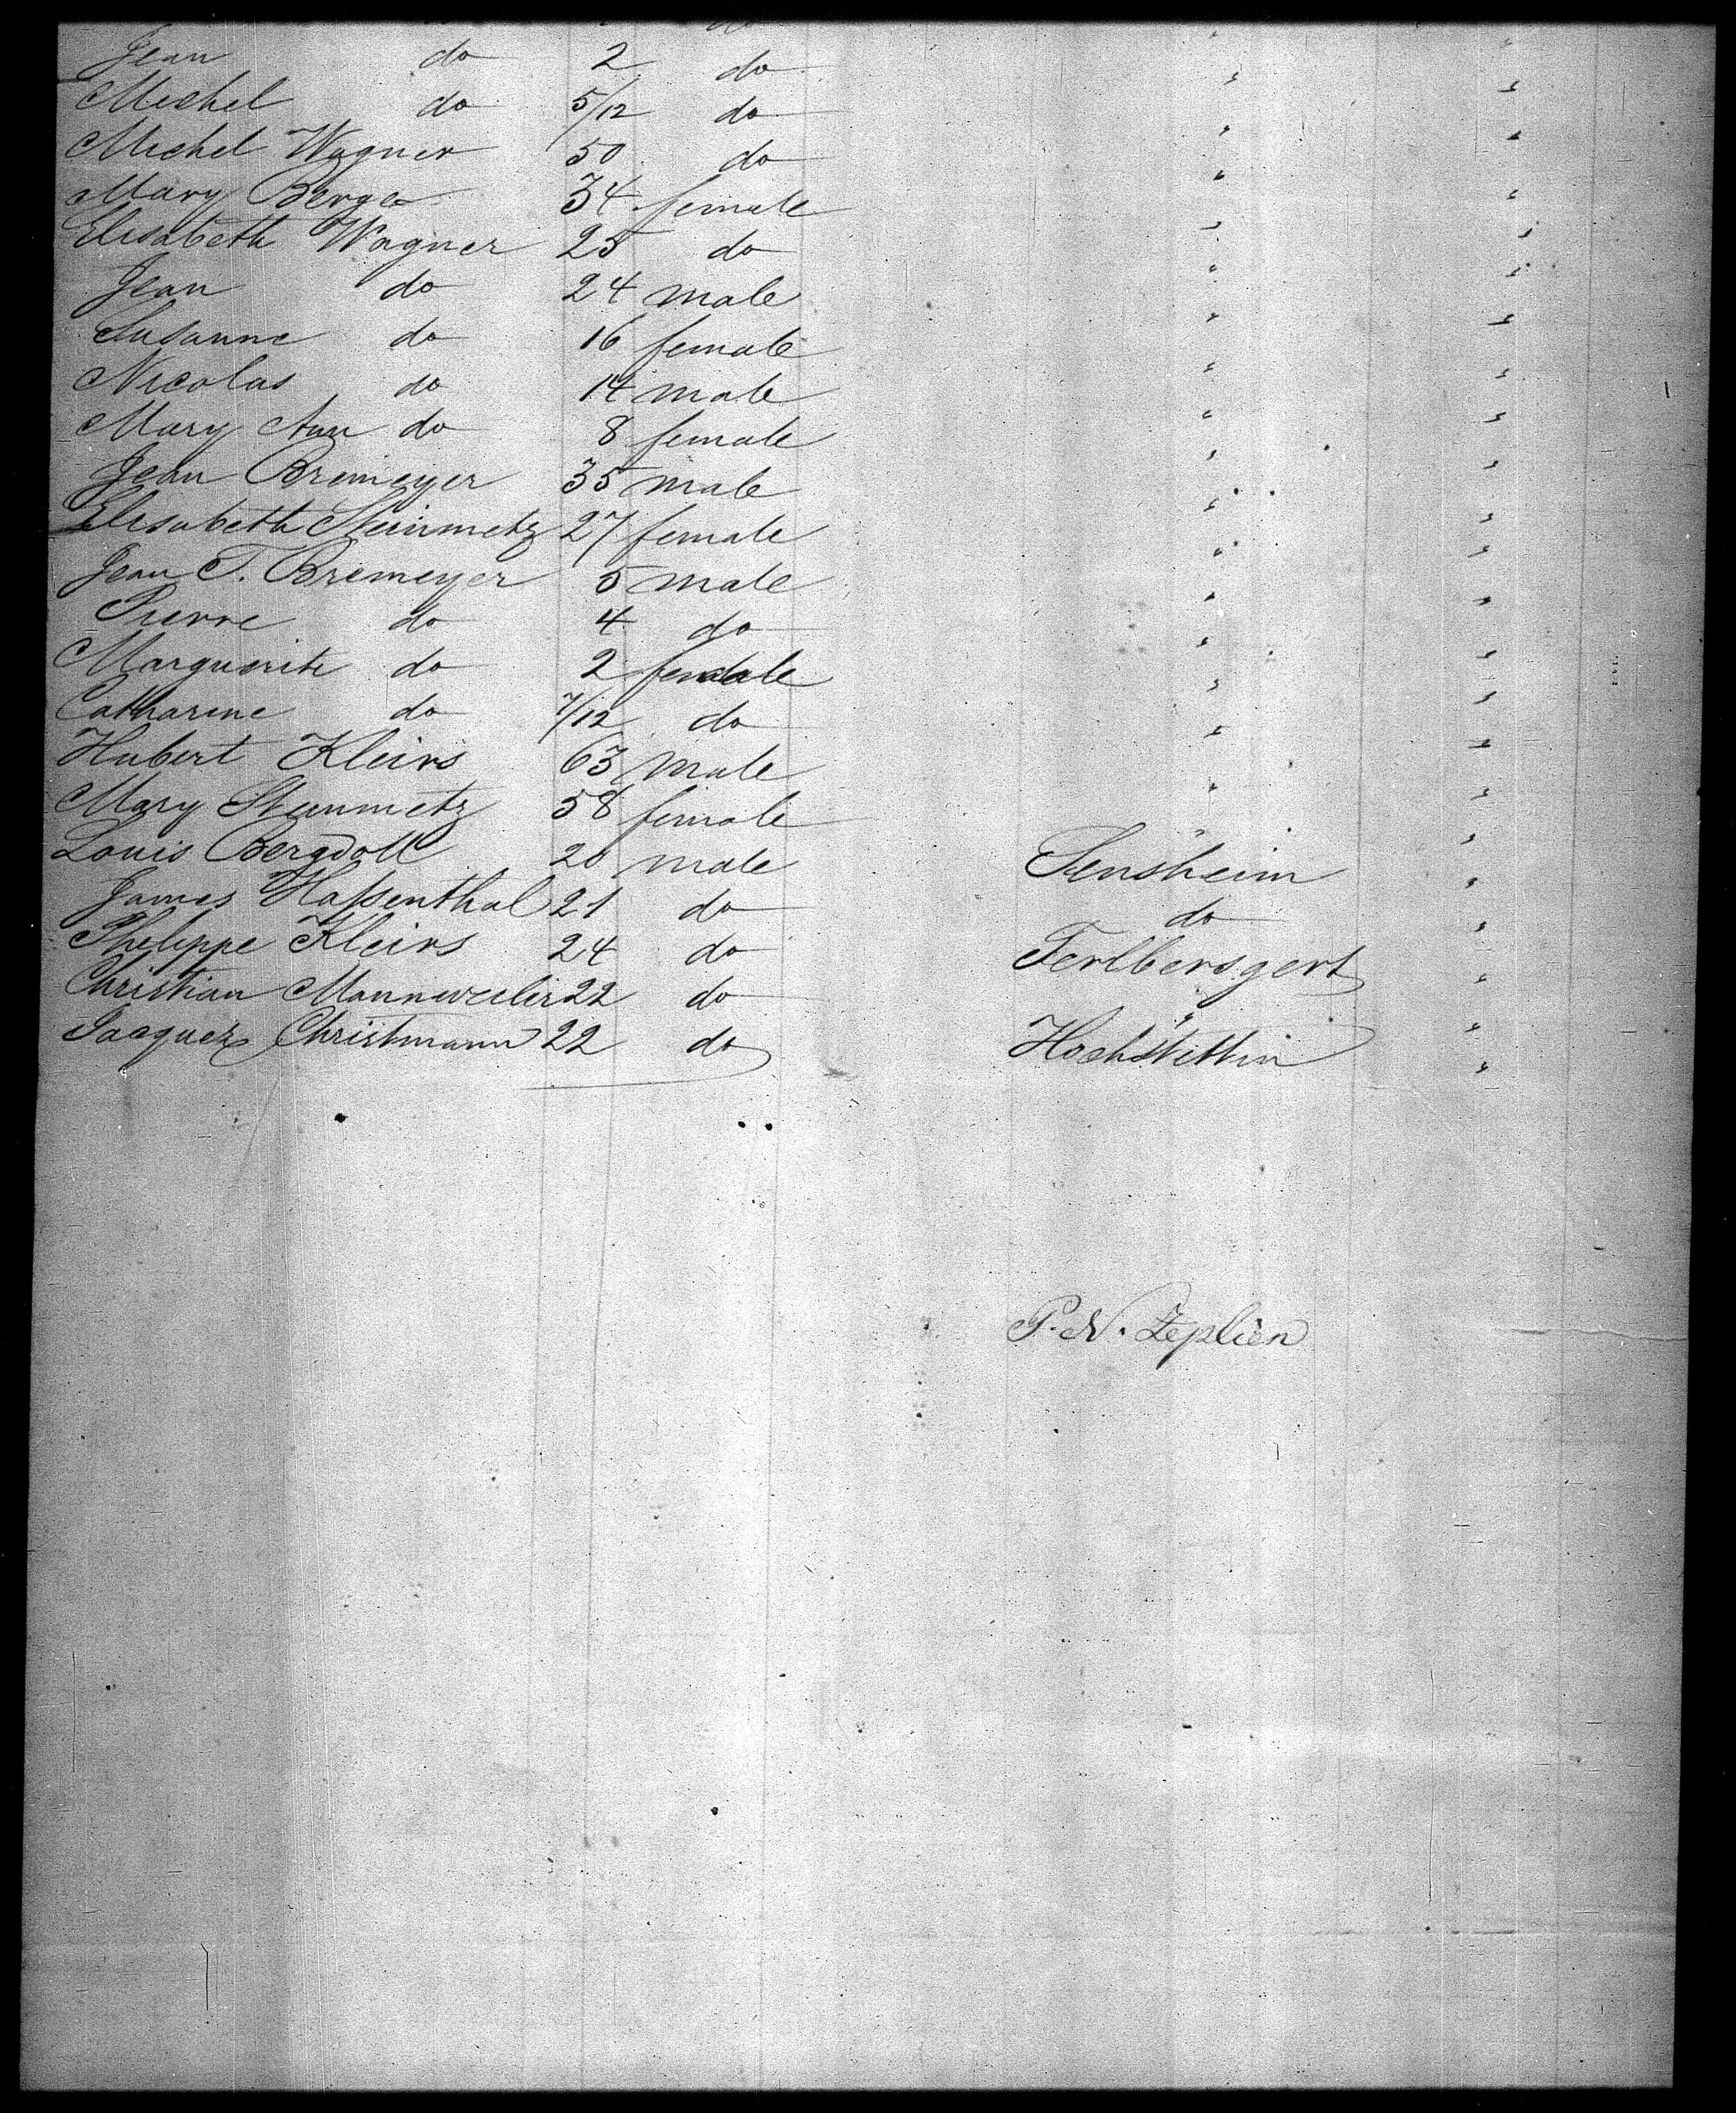 do
Jean do 2 do " "
Michel do 5/12 do " "
Michel Wagner 50 do " "
Mary Berge 34 female " "
Elisabeth Wagner 25 do " "
Jean do 24 male " "
Susanne do 16 female " "
Nicolas do 14 male " "
Mary Ann do 8 female " "
Jean Bremeyer 35 male " "
Elisabeth Steinmetz 27 female " "
Jean T. Bremeyer 5 male " "
Pierre do 4 do " "
Marguerite do 2 female " "
Catharine do 7/12 do " "
Hubert Kleins 63 male " "
Mary Steinmetz 58 female " "
Louis Bergdoll 20 male Sensheim "
James Hassenthal 21 do do "
Philippe Kleins 24 do Ferlbersgert "
Christian Mannweiler 22 do " "
Jacques Christmann 22 do Hochstettin "
P. N. Zeplien